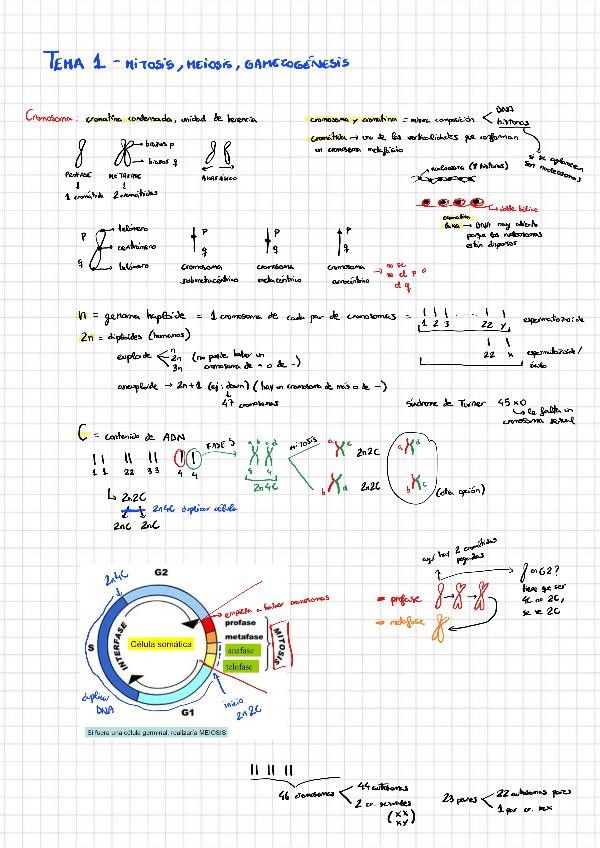 TEMA 1 - MITOSIS, MEIOSIS, GAMETOGÉNESIS
Cromosoma: cromatina condensada, unidad de herencia
cromosoma y cromatina = misma composición
DNA
histonas
si se agrupan son nucleosomas
cromátida → una de las verticalidades que conforman
un cromosoma metafásico
brazos p
brazos q
PROFASE
METAFASE
ANAFÁSICO
1 cromátida
2 cromátidas
nucleosoma (8 histonas)
doble hélice
cromatina
laxa → DNA muy abierto
porque los nucleosomas
están dispersos
p
q
telómero
centrómero
telómero
p
q
p
q
p
q
cromosoma
submetacéntrico
cromosoma
metacéntrico
cromosoma
acrocéntrico
→ no se
ve el p o
el q
n = genoma haploide = 1 cromosoma de cada par de cromosomas =
1 2 3 ... 22 y
espermatozoide
22 x
espermatozoide/
óvulo
2n = diploides (humanos)
euploide
n
2n
3n
(no puede haber un
cromosoma de + o de -)
aneuploide → 2n+1 (ej: down) (hay un cromosoma de más o de -)
47 cromosomas
Síndrome de Turner 45 x0
le falta un
cromosoma sexual
C = contenido de ADN
1 1 22 33 4 4
FASE S
a b c d
4 4
2n4C
MITOSIS
a c 2n2C
b d 2n2C
a d
b c
(otra opción)
2n2C
2n4C duplicar célula
2nC 2nC
aquí hay 2 cromátidas
pegadas
profase
metafase
en G2?
tiene que ser
4C no 2C,
se ve 2C
2n4C
G2
S
INTERFASE
Célula somática
empieza a haber cromosomas
profase
metafase
anafase
telofase
MITOSIS
duplicar
DNA
G1
inicio
2n2C
Si fuera una célula germinal, realizaría MEIOSIS
46 cromosomas
44 autosomas
2 cr. sexuales
(XX
XY)
23 pares
22 autosomas pares
1 par cr. sex